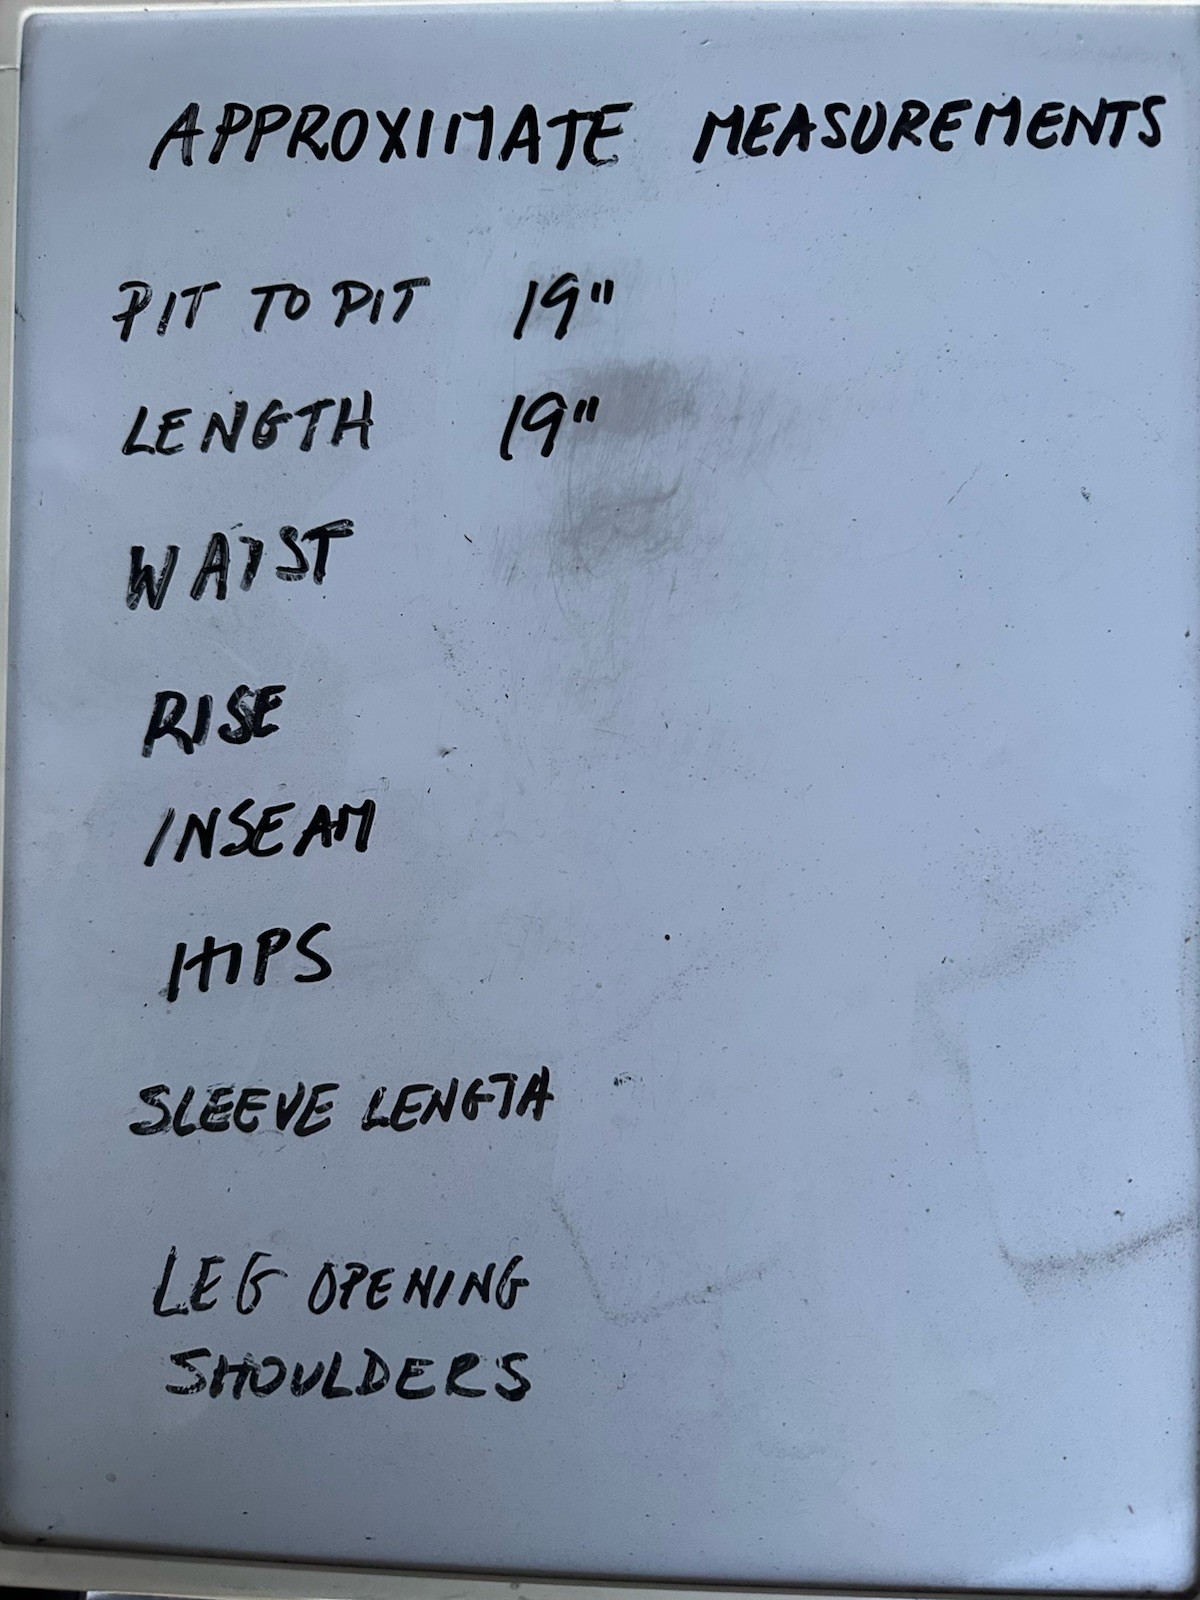 APPROXIMATE MEASUREMENTS
PIT TO PIT 19"
LENGTH 19"
WAIST
RISE
INSEAM
HIPS
SLEEVE LENGTH
LEG OPENING
SHOULDERS